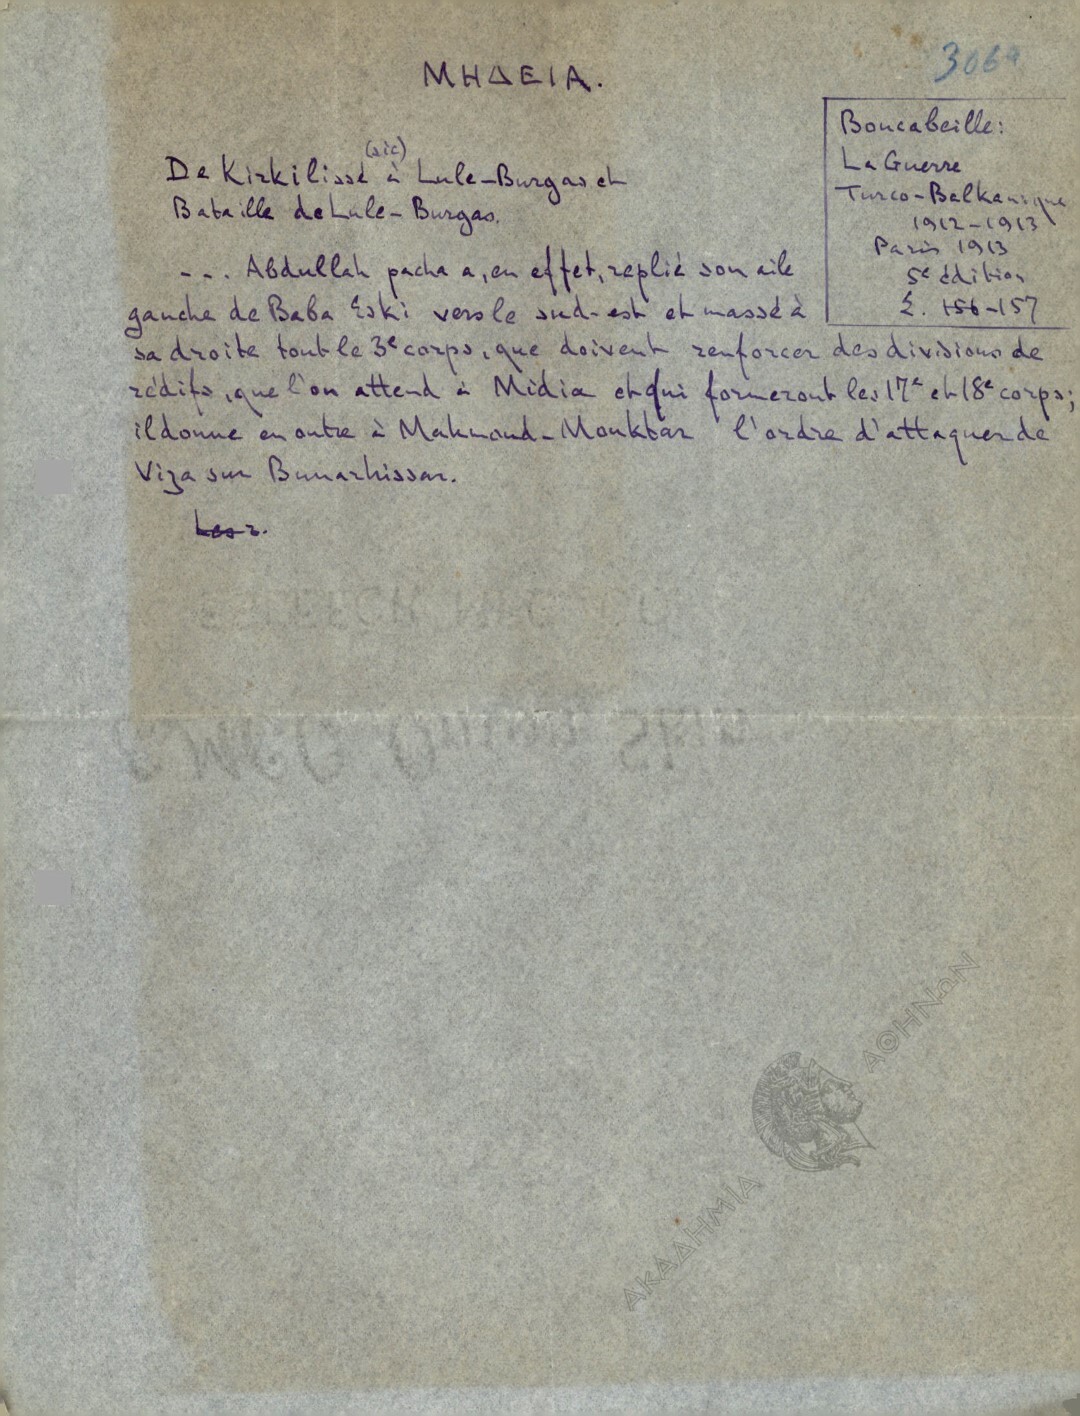 ΜΗΔΕΙΑ.
306
Boucabeille:
La Guerre
Turco-Balkanique
1912-1913
Paris 1913
5e édition
Σ. 156-157
(sic)
De Kirkilissé à Lule-Burgas et
Bataille de Lule-Burgas.
... Abdullah pacha a, en effet, replié son aile
gauche de Baba Eski vers le sud-est et massé à
sa droite tout le 3e corps, que doivent renforcer des divisions de
rédifs, que l'on attend à Midia et qui formeront les 17e et 18e corps;
il donne en outre à Mahmoud-Mouktar l'ordre d'attaquer de
Viza sur Bunarhissar.
ΑΚΑΔΗΜΙΑ ΑΘΗΝΩΝ